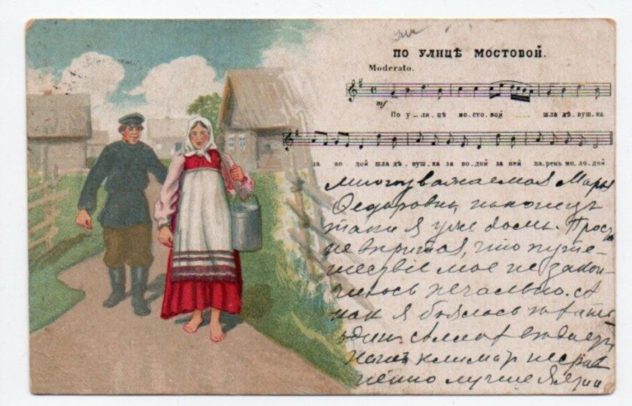 ПО УЛИЦѢ МОСТОВОЙ.
Moderato.
mf
По у_ли_цѣ мо_сто_вой шла дѣ_вуш_ка
за во_дой шла дѣ_вуш_ка за во_дой за ней па_рень мо_ло_дой
Многоуважаемая Марья
Федоровна, наконецъ
таки я уже дома.
что путе-
шествіе мое не закон-
чилось печально. А
какъ я боялась
одни
климат несрав
ненно лучше